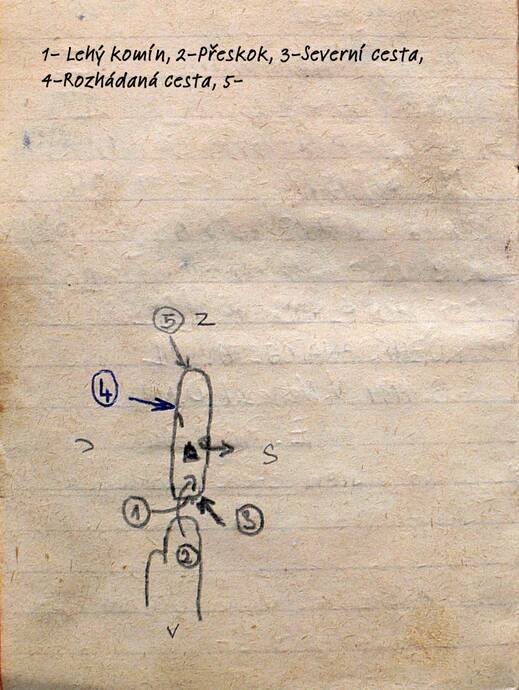 1- Lehý komín, 2-Přeskok, 3-Severní cesta,
4-Rozhádaná cesta, 5-
5 Z
4
J S
1 3
2
V